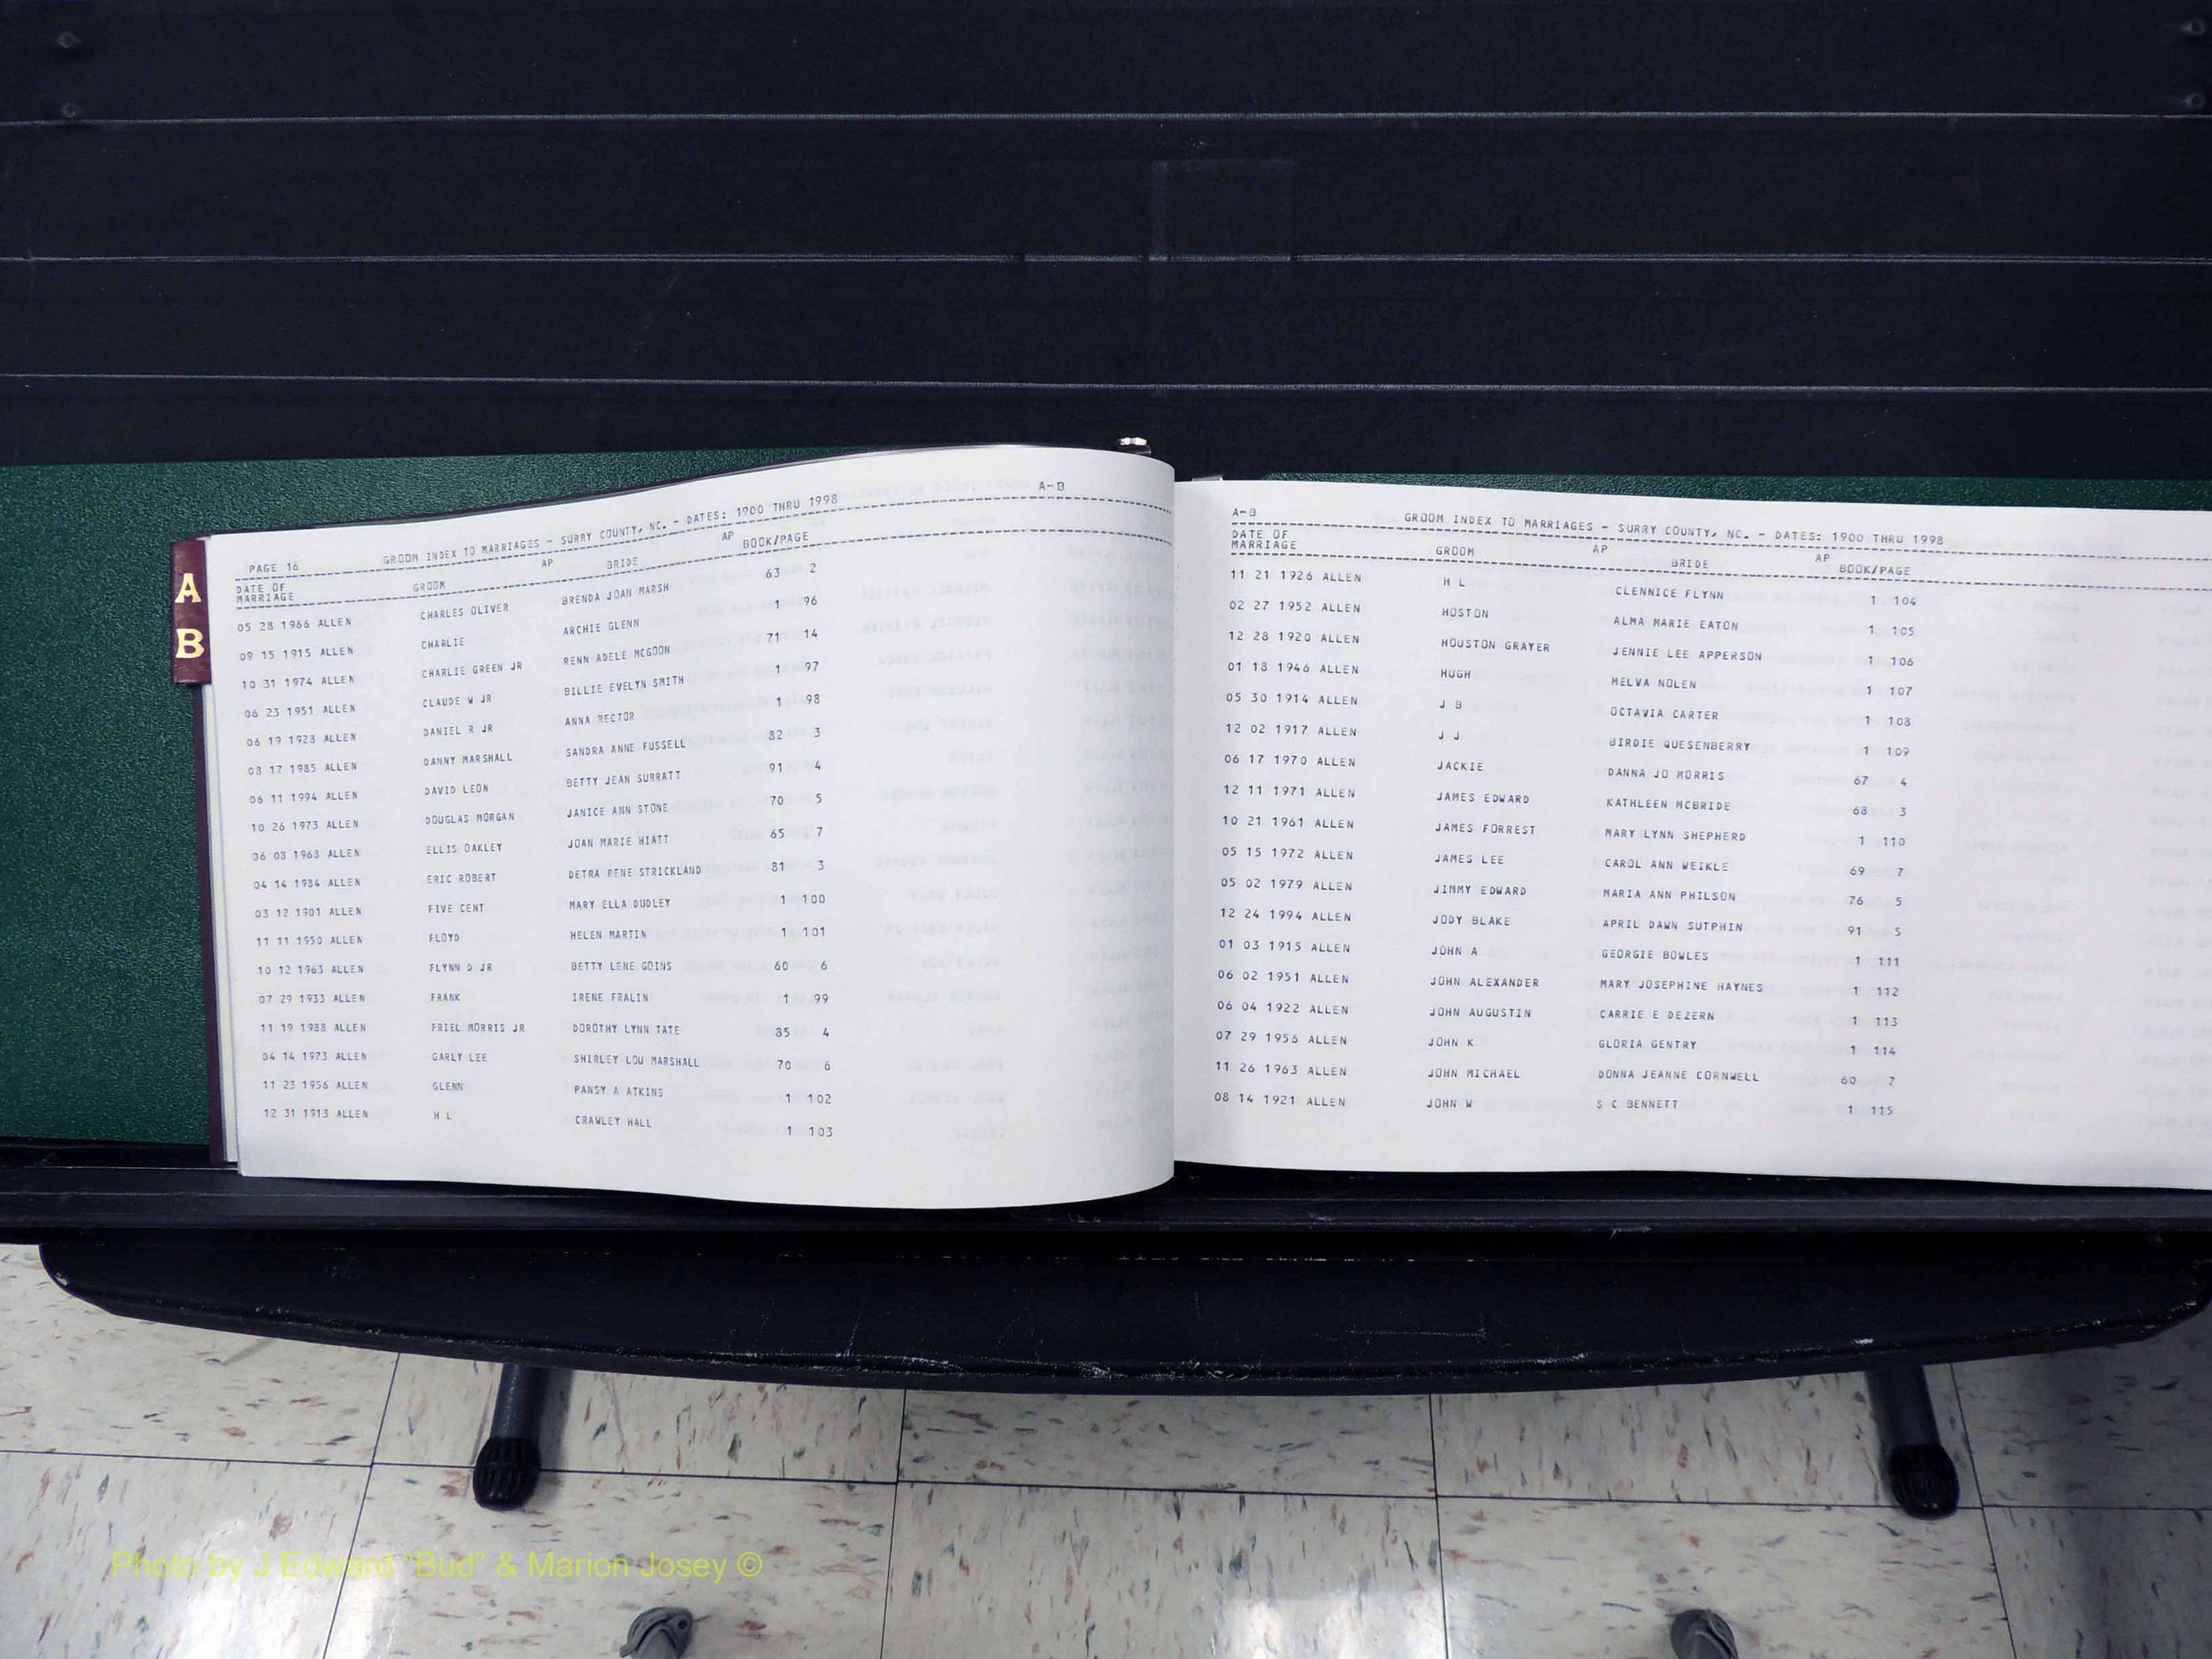 A
B
A-B
PAGE 16 GROOM INDEX TO MARRIAGES - SURRY COUNTY, NC. - DATES: 1900 THRU 1998
DATE OF MARRIAGE GROOM AP BRIDE AP BOOK/PAGE
05 28 1966 ALLEN CHARLES OLIVER BRENDA JOAN MARSH 63 2
09 15 1915 ALLEN CHARLIE ARCHIE GLENN 1 96
10 31 1974 ALLEN CHARLIE GREEN JR RENN ADELE MCGOON 71 14
06 23 1951 ALLEN CLAUDE W JR BILLIE EVELYN SMITH 1 97
06 19 1928 ALLEN DANIEL R JR ANNA RECTOR 1 98
08 17 1985 ALLEN DANNY MARSHALL SANDRA ANNE FUSSELL 82 3
06 11 1994 ALLEN DAVID LEON BETTY JEAN SURRATT 91 4
10 26 1973 ALLEN DOUGLAS MORGAN JANICE ANN STONE 70 5
06 08 1968 ALLEN ELLIS OAKLEY JOAN MARIE HIATT 65 7
04 14 1984 ALLEN ERIC ROBERT DETRA RENE STRICKLAND 81 3
03 12 1901 ALLEN FIVE CENT MARY ELLA DUDLEY 1 100
11 11 1950 ALLEN FLOYD HELEN MARTIN 1 101
10 12 1963 ALLEN FLYNN D JR BETTY LENE GOINS 60 6
07 29 1933 ALLEN FRANK IRENE FRALIN 1 99
11 19 1988 ALLEN FRIEL MORRIS JR DOROTHY LYNN TATE 85 4
04 14 1973 ALLEN GARLY LEE SHIRLEY LOU MARSHALL 70 6
11 23 1956 ALLEN GLENN PANSY A ATKINS 1 102
12 31 1913 ALLEN H L CRAWLEY HALL 1 103
A-B GROOM INDEX TO MARRIAGES - SURRY COUNTY, NC. - DATES: 1900 THRU 1998
DATE OF MARRIAGE GROOM AP BRIDE AP BOOK/PAGE
11 21 1926 ALLEN H L CLENNICE FLYNN 1 104
02 27 1952 ALLEN HOSTON ALMA MARIE EATON 1 105
12 28 1920 ALLEN HOUSTON GRAYER JENNIE LEE APPERSON 1 106
01 18 1946 ALLEN HUGH MELVA NOLEN 1 107
05 30 1914 ALLEN J B OCTAVIA CARTER 1 108
12 02 1917 ALLEN J J BIRDIE QUESENBERRY 1 109
06 17 1970 ALLEN JACKIE DANNA JO MORRIS 67 4
12 11 1971 ALLEN JAMES EDWARD KATHLEEN MCBRIDE 68 3
10 21 1961 ALLEN JAMES FORREST MARY LYNN SHEPHERD 1 110
05 15 1972 ALLEN JAMES LEE CAROL ANN WEIKLE 69 7
05 02 1979 ALLEN JIMMY EDWARD MARIA ANN PHILSON 76 5
12 24 1994 ALLEN JODY BLAKE APRIL DAWN SUTPHIN 91 5
01 03 1915 ALLEN JOHN A GEORGIE BOWLES 1 111
06 02 1951 ALLEN JOHN ALEXANDER MARY JOSEPHINE HAYNES 1 112
06 04 1922 ALLEN JOHN AUGUSTIN CARRIE E DEZERN 1 113
07 29 1956 ALLEN JOHN K GLORIA GENTRY 1 114
11 26 1963 ALLEN JOHN MICHAEL DONNA JEANNE CORNWELL 60 7
08 14 1921 ALLEN JOHN W S C BENNETT 1 115
Photo by J Edward "Bud" & Marion Josey ©